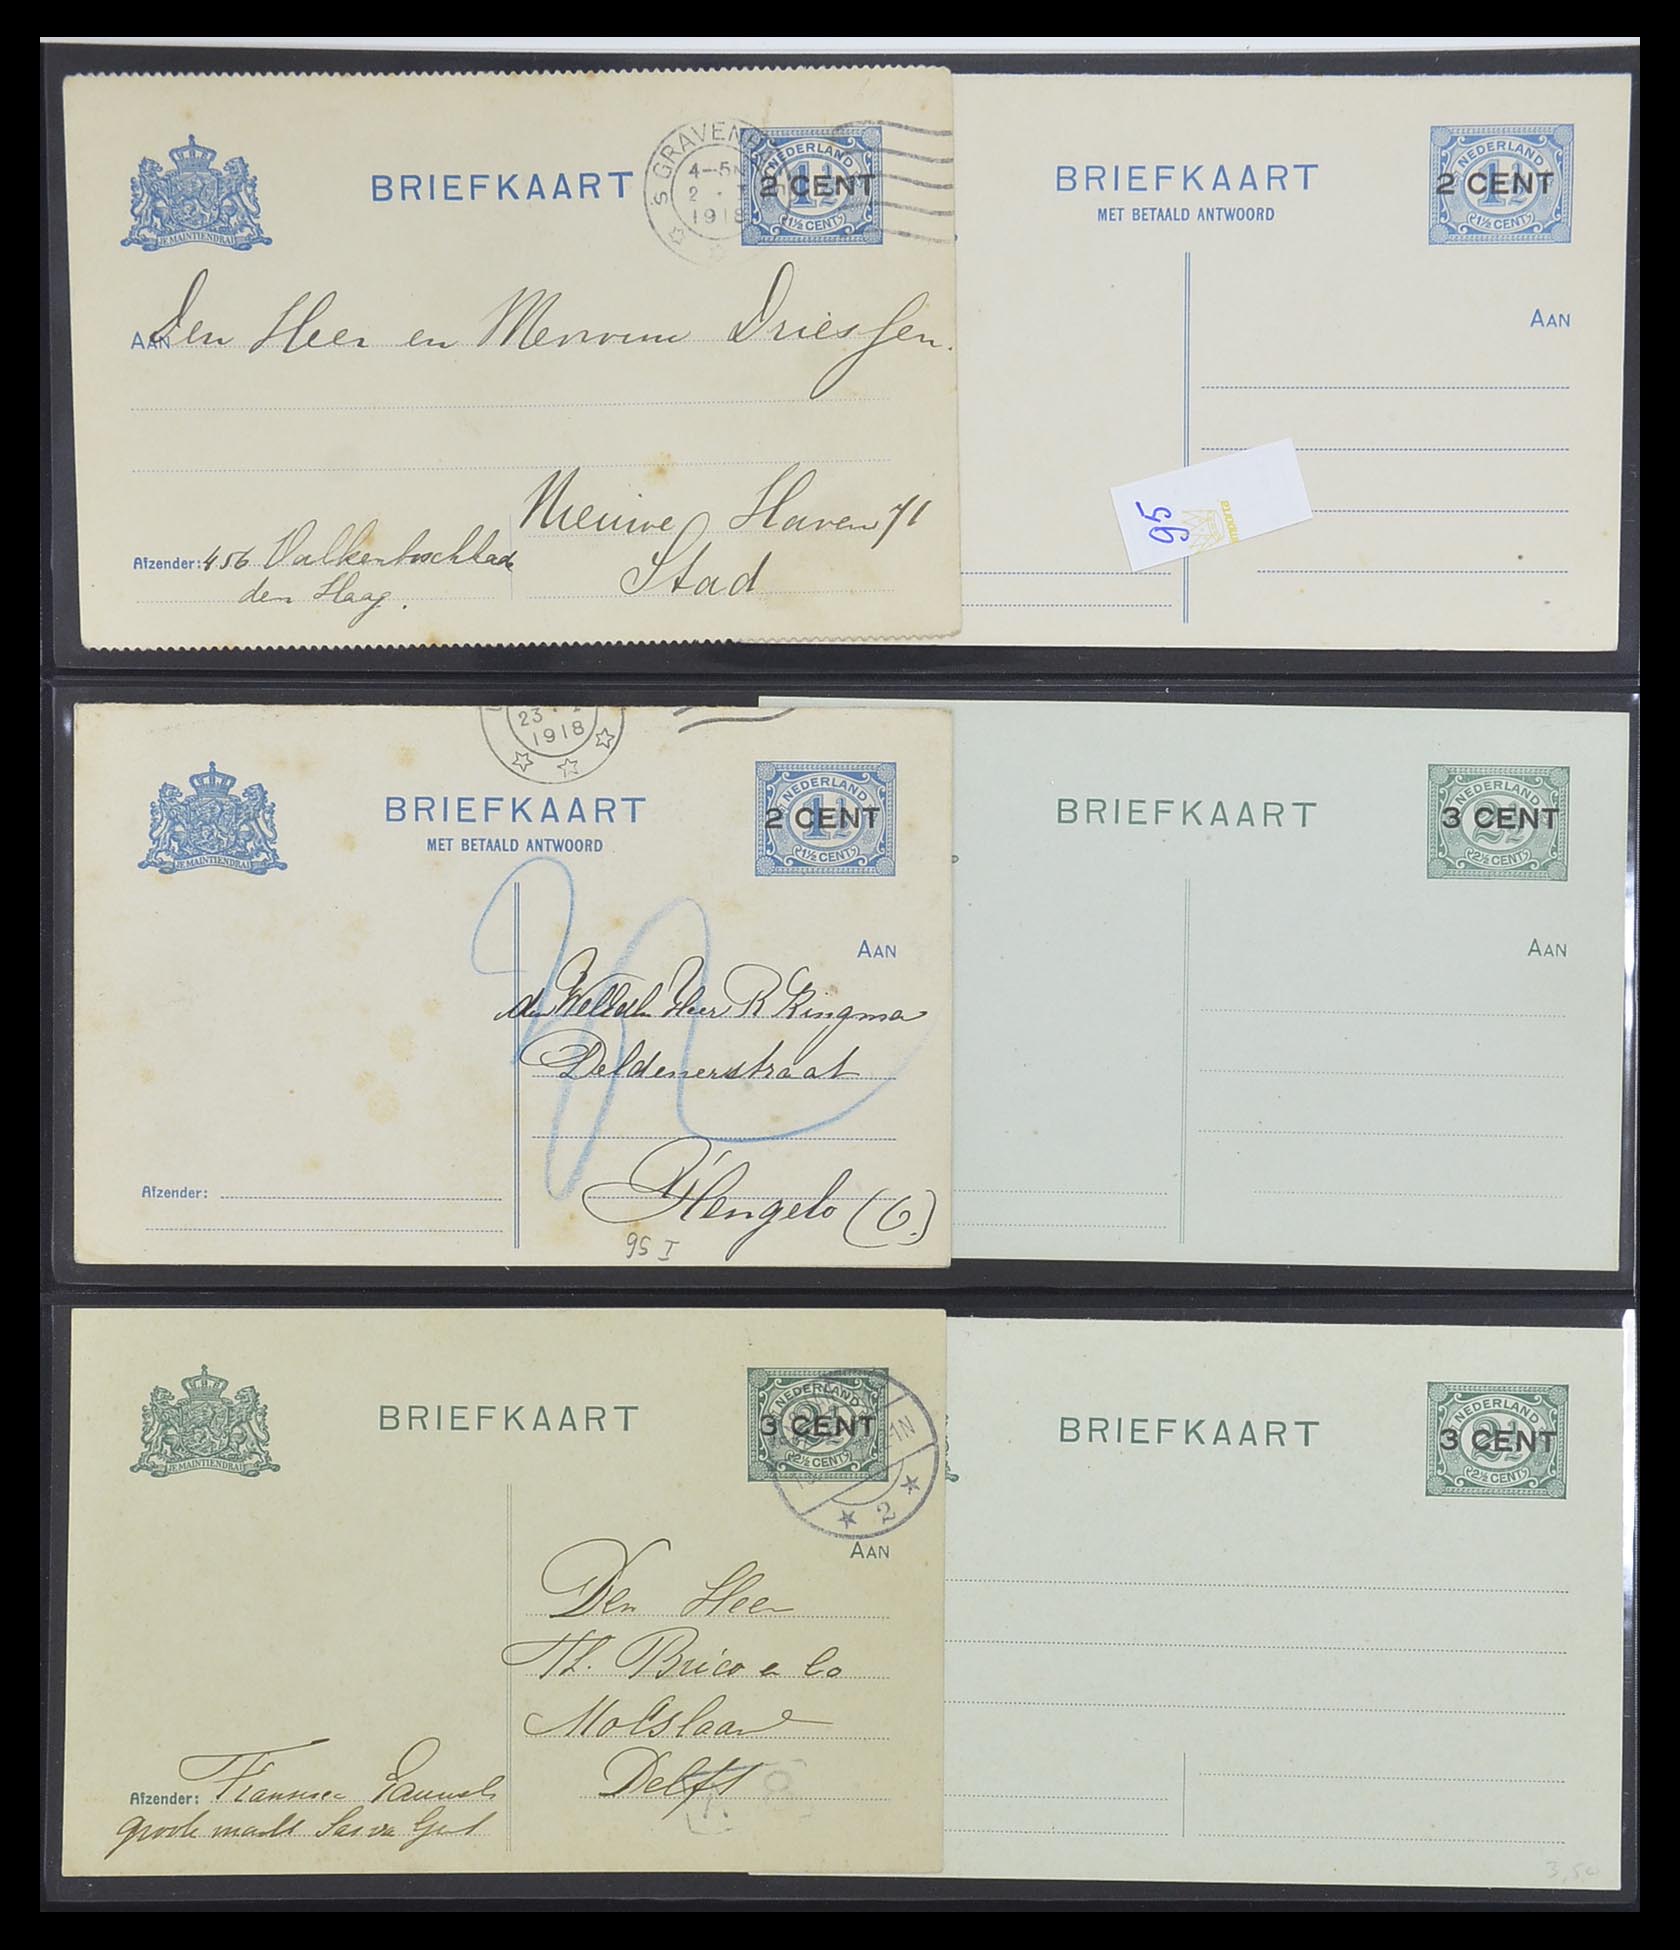 BRIEFKAART
'S GRAVENH
4-5N
2
1918
NEDERLAND
1½
2 CENT
1½ CENT
JE MAINTIENDRAI
AAN
Den Heer en Mevrouw Driessen.
Nieuwe Haven 71
Stad
Afzender: 456 Valkenboschkade
den Haag.
BRIEFKAART
MET BETAALD ANTWOORD
NEDERLAND
1½
2 CENT
1½ CENT
AAN
95
23
1918
BRIEFKAART
MET BETAALD ANTWOORD
NEDERLAND
1½
2 CENT
1½ CENT
JE MAINTIENDRAI
AAN
Heer R Ringma
Deldenerstraat
Hengelo (O.)
Afzender:
95 I
BRIEFKAART
NEDERLAND
2½
3 CENT
2½ CENT
AAN
BRIEFKAART
NEDERLAND
2½
3 CENT
2½ CENT
1N
2
JE MAINTIENDRAI
AAN
Den Heer
Th. Brico & Co
Molslaan
Delft
Afzender: Franssen
groote markt Sas van Gent
BRIEFKAART
NEDERLAND
2½
3 CENT
2½ CENT
3,50